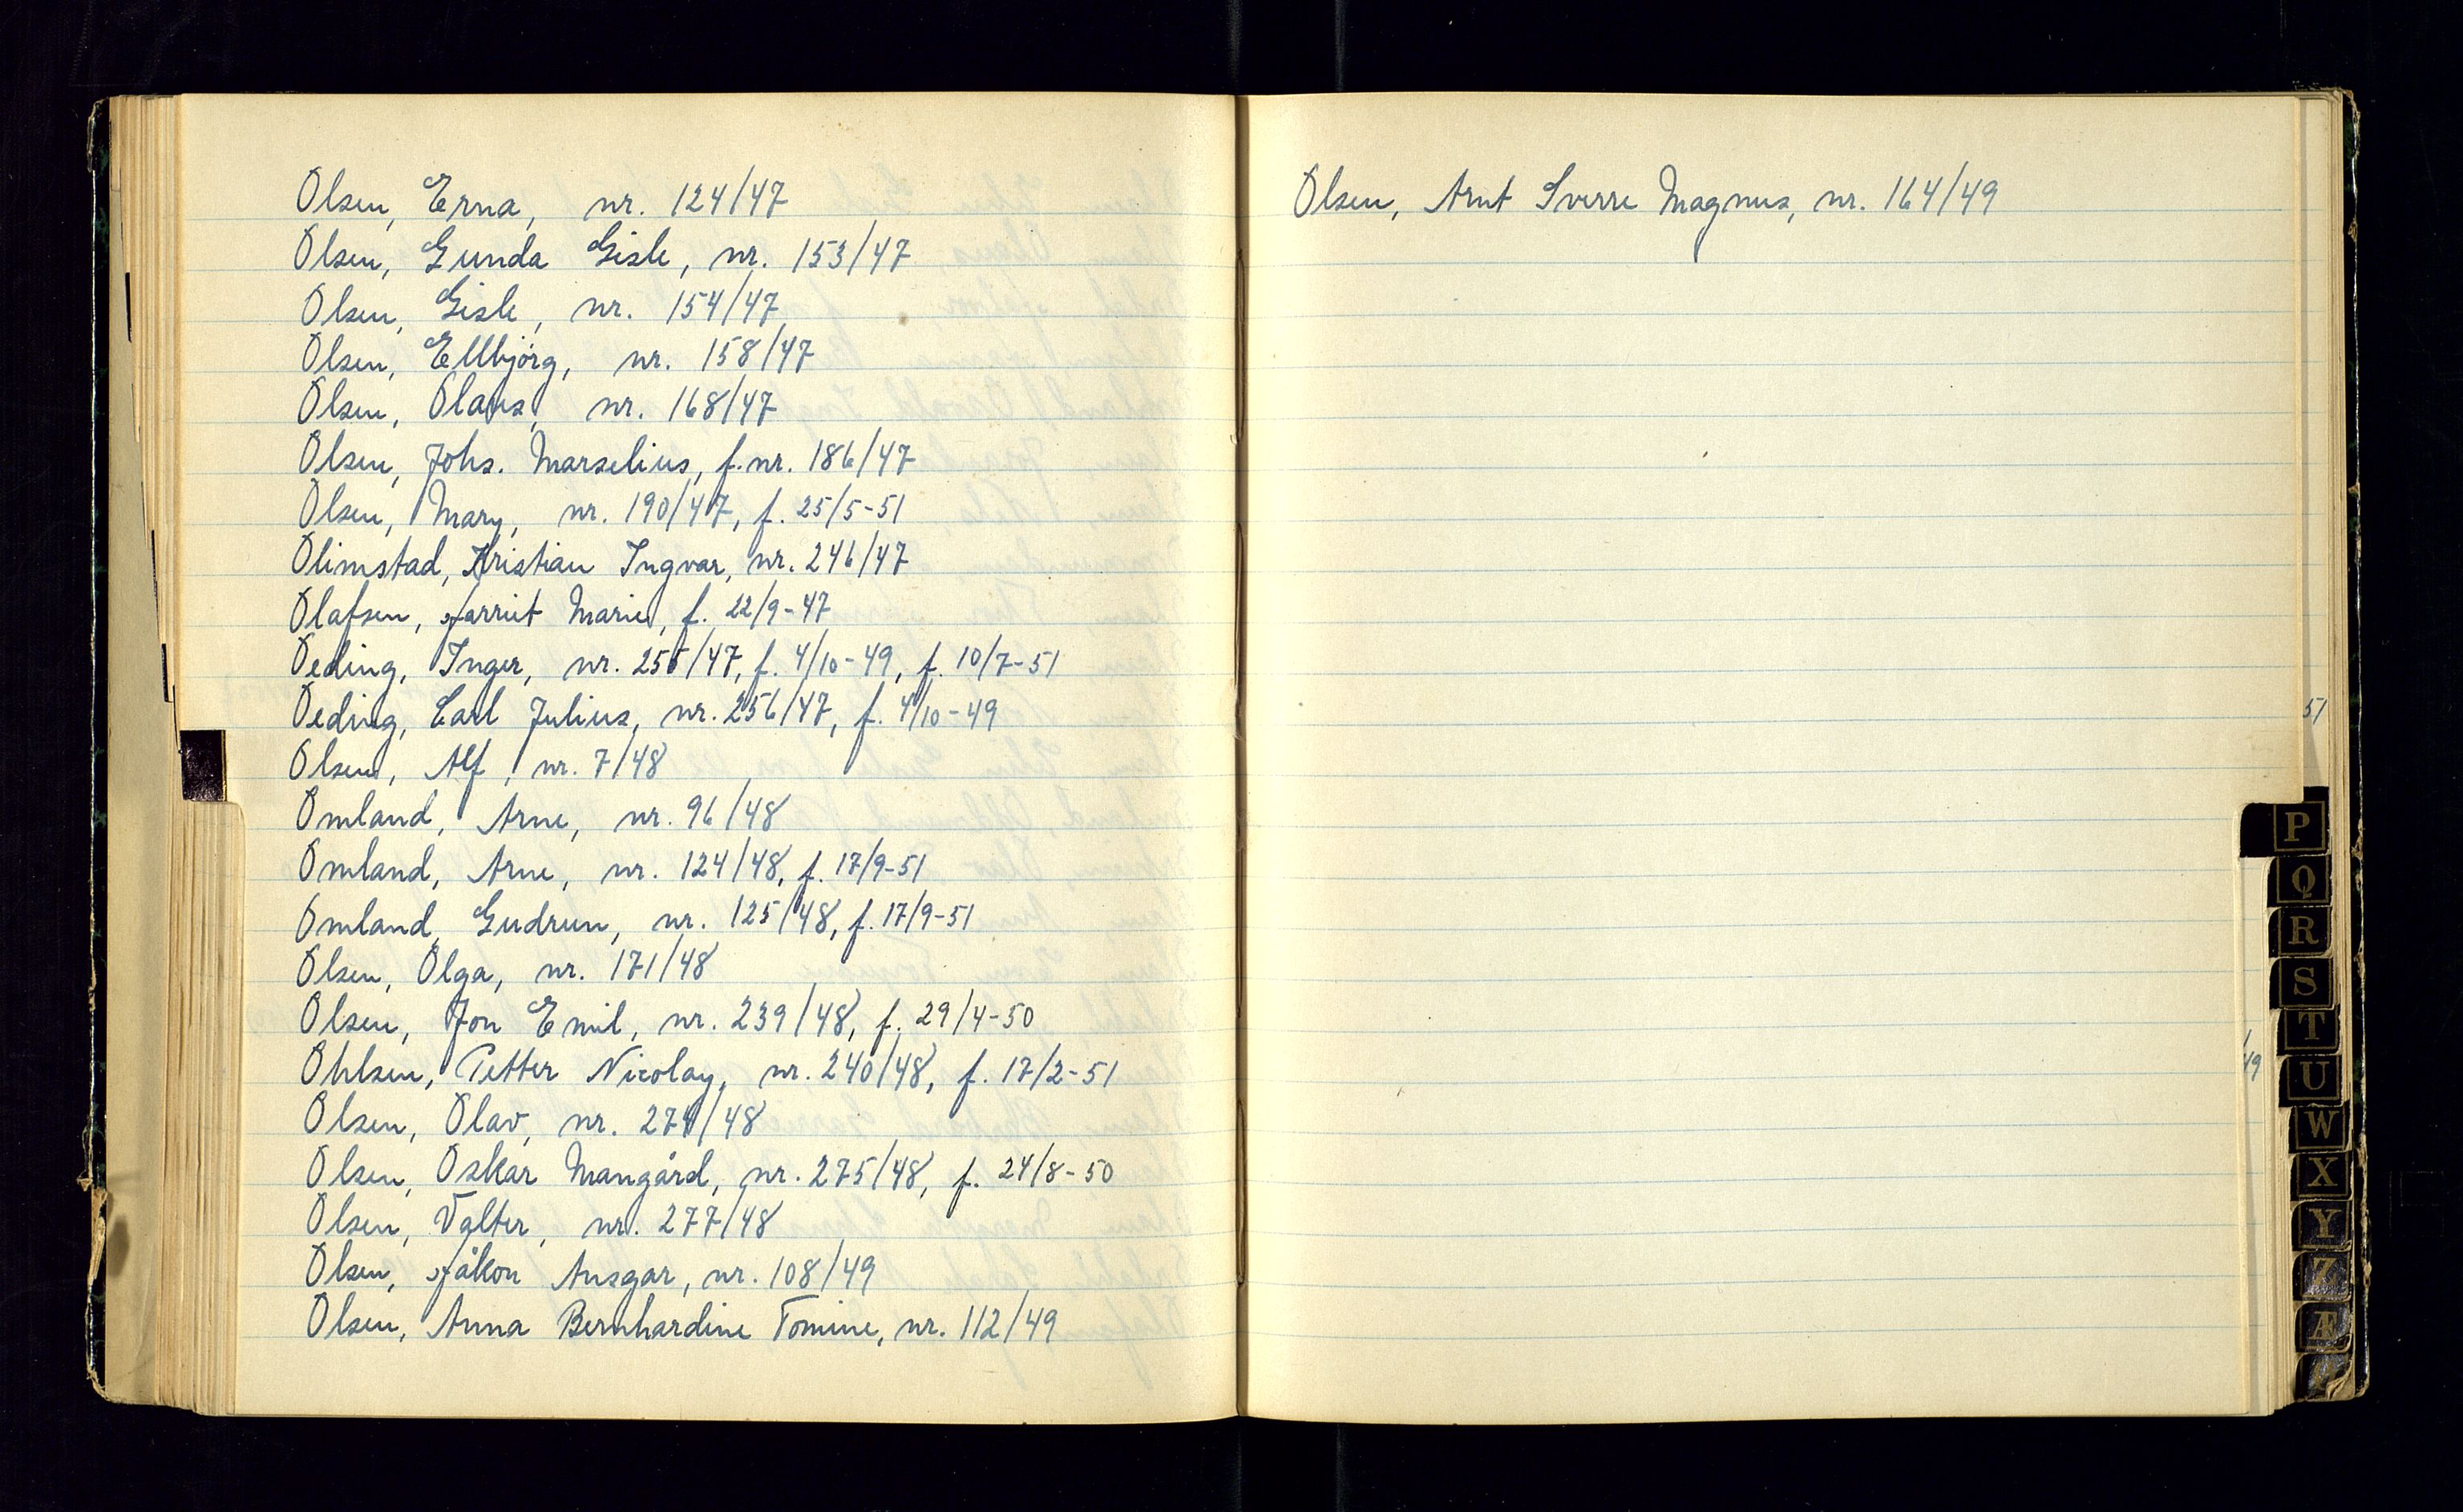 Olsen, Erna, nr. 124/47
Olsen, Gunda Gisle, nr. 153/47
Olsen, Gisle, nr. 154/47
Olsen, Ellbjörg, nr. 158/47
Olsen, Olaus, nr. 168/47
Olsen, Johs. Marselius, f. nr. 186/47
Olsen, Mary, nr. 190/47, f. 25/5-51
Olimstad, Kristian Ingvar, nr. 246/47
Olafsen, Harriet Marie, f. 22/9-47
Oeding, Inger, nr. 255/47, f. 4/10-49, f. 10/7-51
Oeding, Carl Julius, nr. 256/47, f. 4/10-49
Olsen, Alf, nr. 7/48
Omland, Arne, nr. 96/48
Omland, Arne, nr. 124/48, f. 17/9-51
Omland, Gudrun, nr. 125/48, f. 17/9-51
Olsen, Olga, nr. 171/48
Olsen, Jon Emil, nr. 239/48, f. 29/4-50
Ohlsen, Petter Nicolay, nr. 240/48, f. 17/2-51
Olsen, Olav, nr. 274/48
Olsen, Oskar Mangård, nr. 275/48, f. 24/8-50
Olsen, Valter, nr. 277/48
Olsen, Håkon Ansgar, nr. 108/49
Olsen, Anna Bernhardine Tomine, nr. 112/49
Olsen, Arnt Sverre Magnus, nr. 164/49
51
49
P
Q
R
S
T
U
W
X
Y
Z
Æ